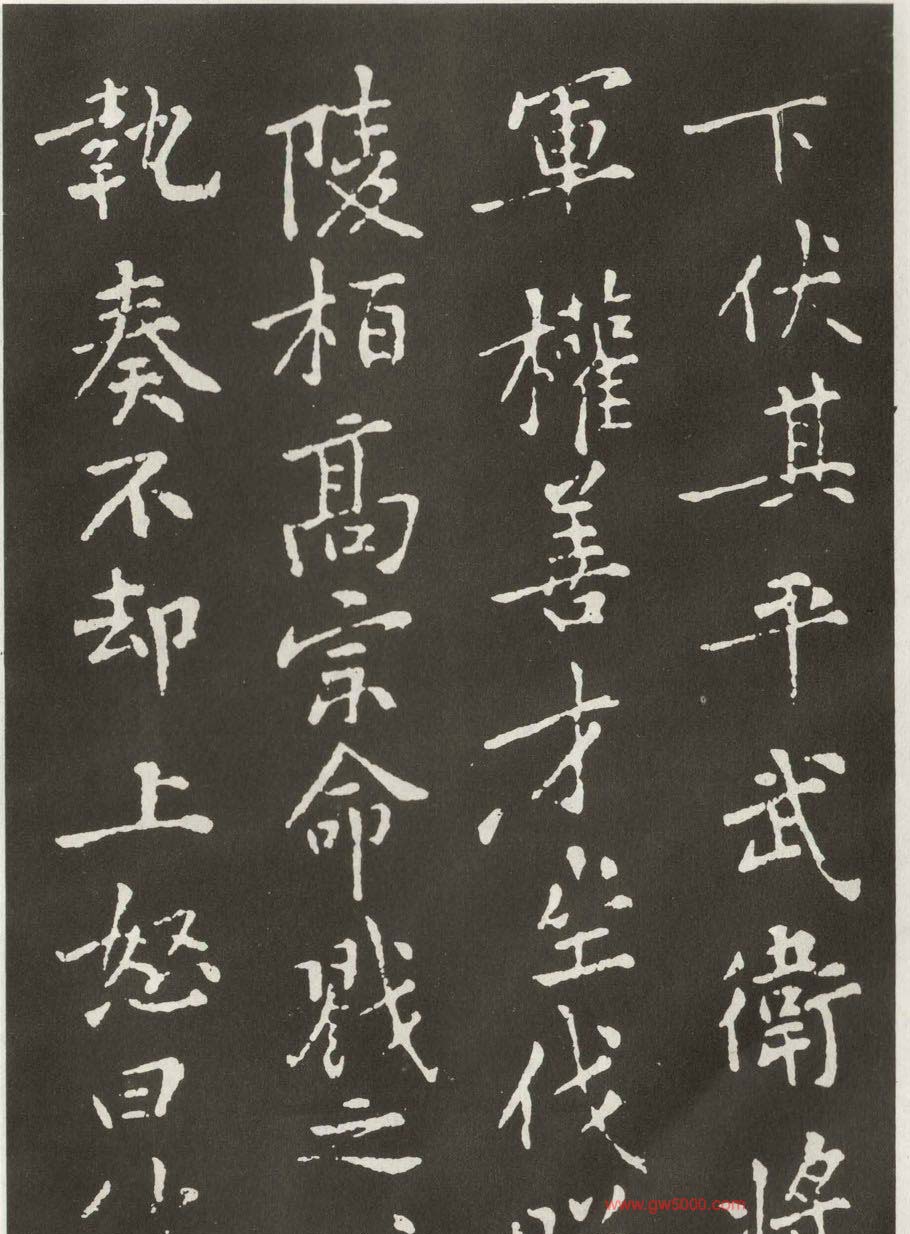 下伏其平武衛將
軍權善才坐伐
陵栢高宗命戮之
執奏不却上怒曰
www.gw5000.com